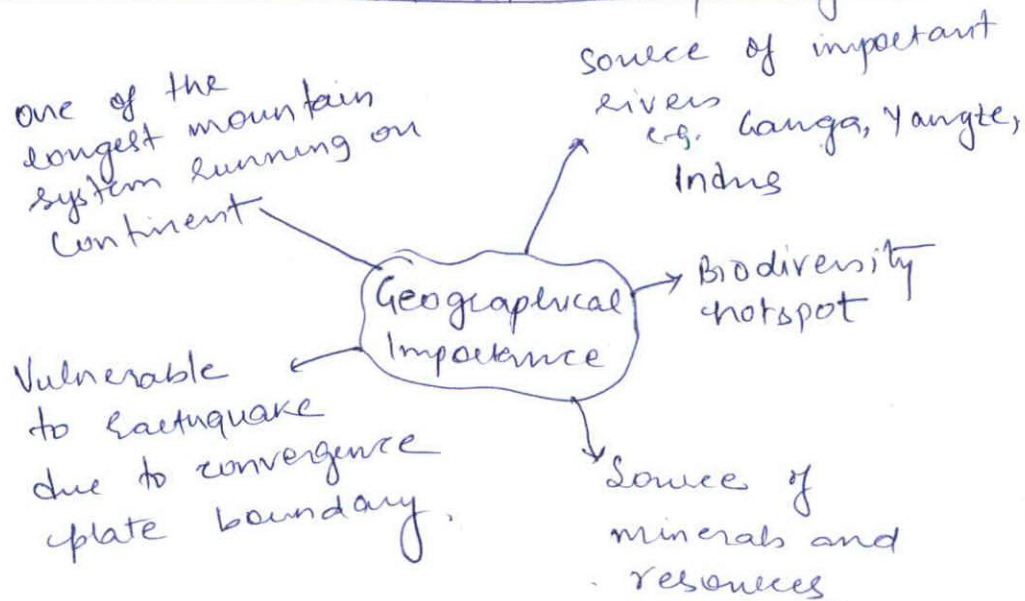 one of the
longest mountain
system running on
continent
Source of important
rivers
e.g. Ganga, Yangte,
Indus
Biodiversity
hotspot
Geographical
Importance
Vulnerable
to Earthquake
due to convergence
plate boundary.
Source of
minerals and
resources